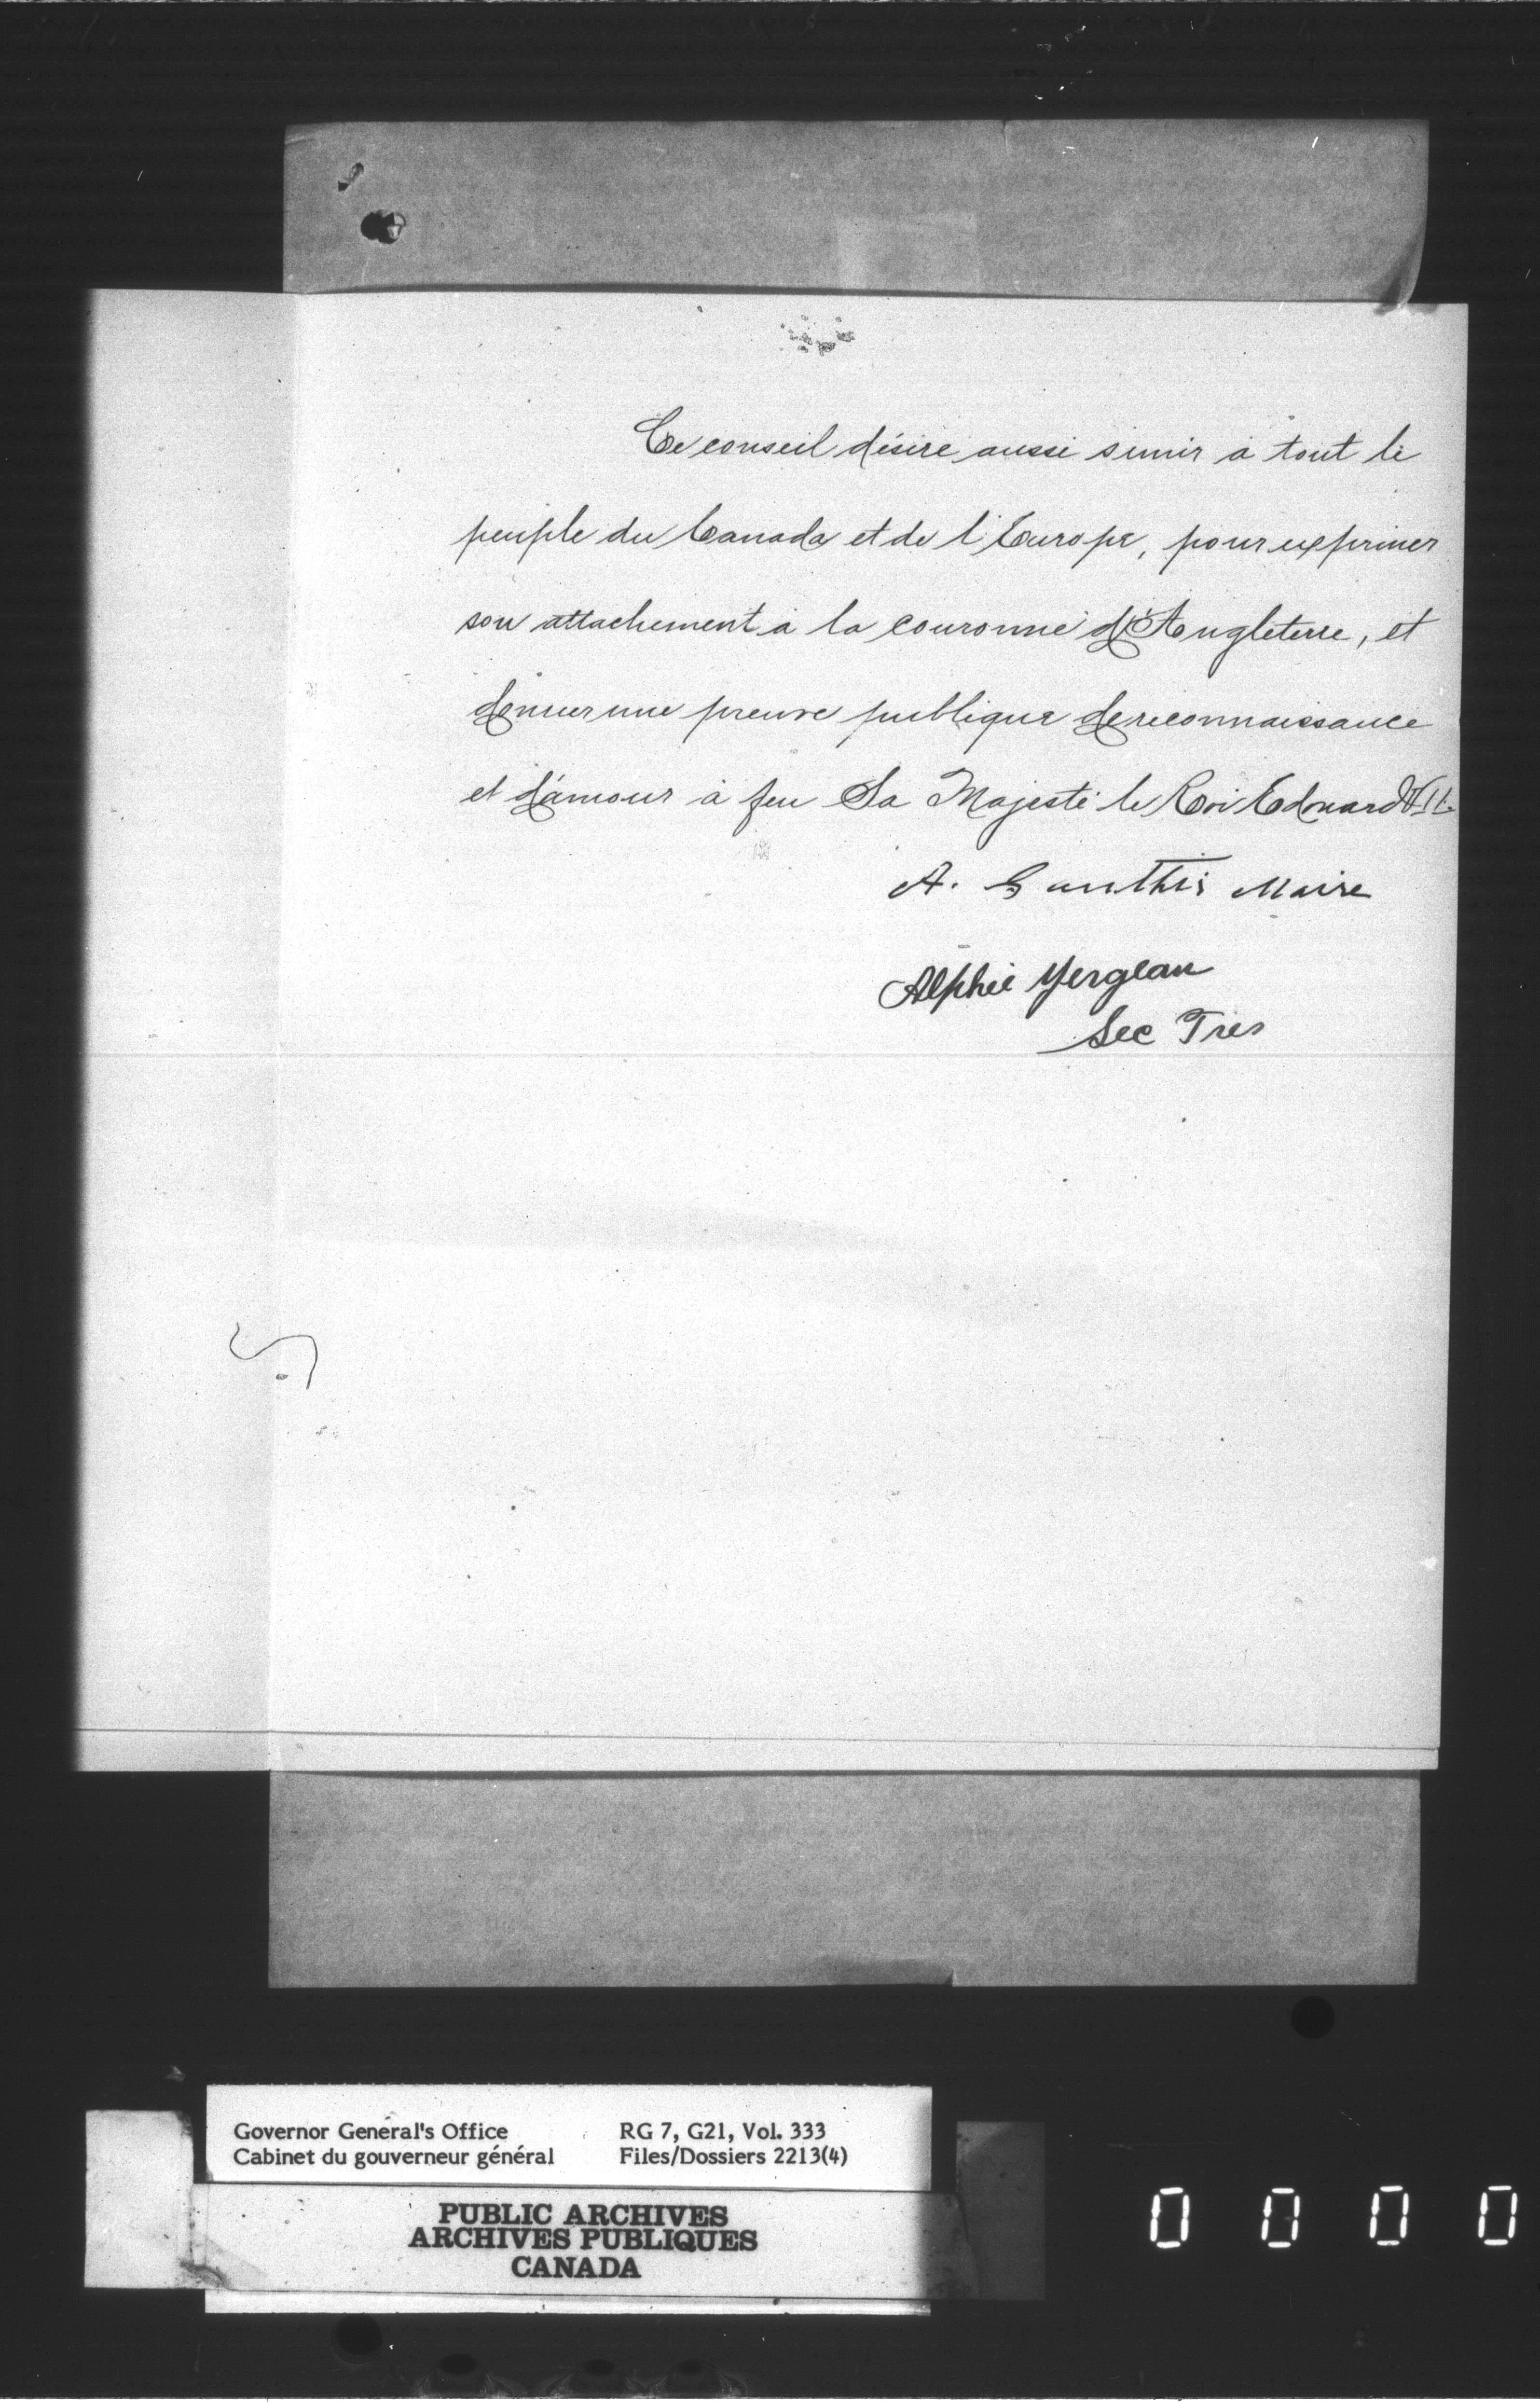 Ce conseil désire aussi s'unir à tout le
peuple du Canada et de l'Europe, pour exprimer
son attachement à la couronne d'Angleterre, et
donner une preuve publique de reconnaissance
et d'amour à feu Sa Majesté le Roi Edouard VII.
A. Gauthier Maire
Alphée Vergeau
Sec Tres
Governor General's Office RG 7, G21, Vol. 333
Cabinet du gouverneur général Files/Dossiers 2213(4)
PUBLIC ARCHIVES
ARCHIVES PUBLIQUES
CANADA
0 0 0 0